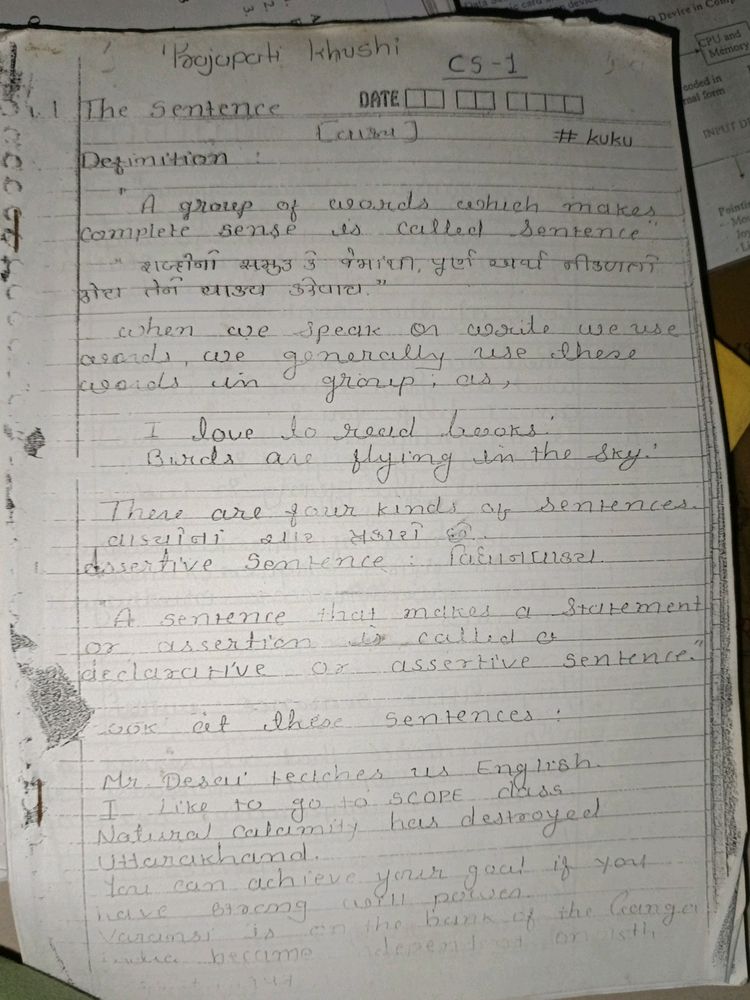 Prajapati Khushi
CS-1
1.1 The Sentence
DATE
[વાક્ય]
# kuku
Definition :
"A group of words which makes
complete sense is called sentence"
" શબ્દોનો સમુહ કે જેમાંથી, પૂર્ણ અર્થ નીકળતો
હોય તેને વાક્ય કહેવાય."
when we speak or write we use
words, we generally use these
words in group; as,
I love to read books.
Birds are flying in the sky.
There are four kinds of sentences.
વાક્યોનાં ચાર પ્રકારો છે.
Assertive Sentence : વિધાનવાક્ય.
"A sentence that makes a statement
or assertion is called a
declarative or assertive sentence."
ook at these sentences :
Mr. Desai teaches us English.
I like to go to SCOPE class
Natural calamity has destroyed
Uttarakhand.
You can achieve your goal if you
have strong will power.
Varansi is on the bank of the Ganga
India became on 15th
CPU and
Memory
INPUT